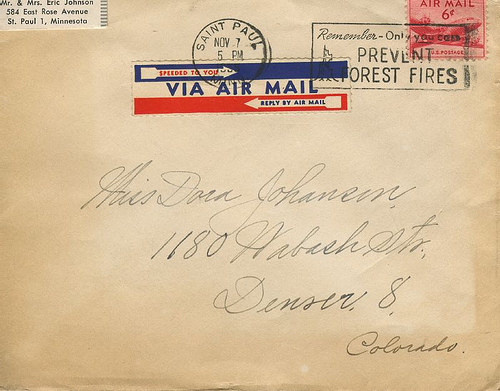 Mr. & Mrs. Eric Johnson
584 East Rose Avenue
St. Paul 1, Minnesota
SAINT PAUL
NOV 7
5 PM
AIR MAIL
6¢
U.S. POSTAGE
Remember - Only you can
PREVENT
FOREST FIRES
SPEEDED TO YOU
VIA AIR MAIL
REPLY BY AIR MAIL
Miss Dora Johansen,
1180 Wabash Str.,
Denver, 8,
Colorado.